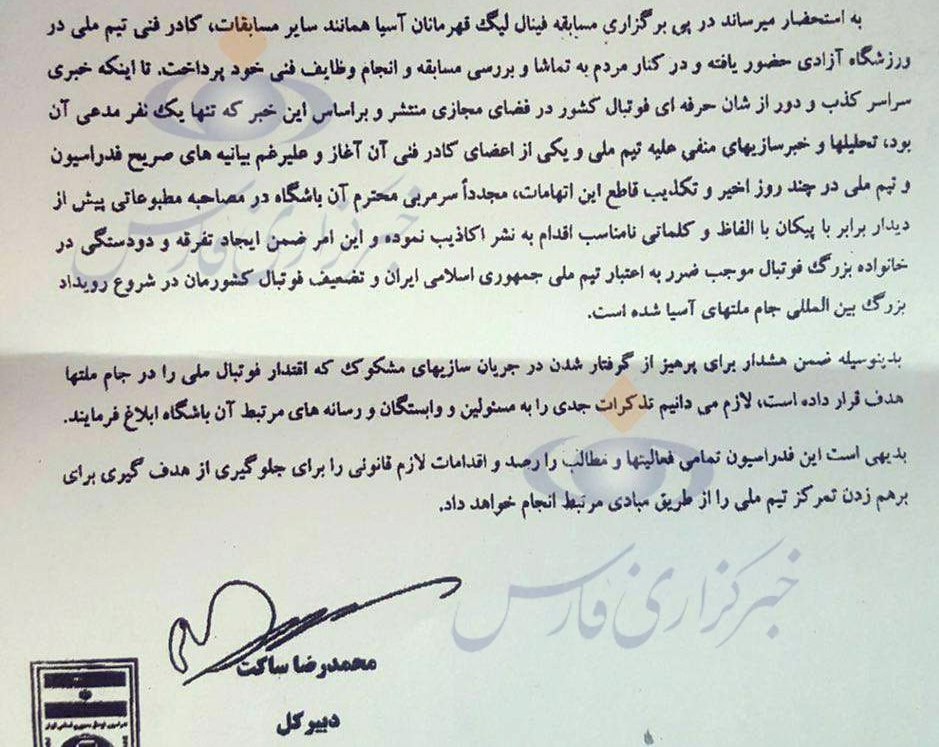 به استحضار میرساند در پی برگزاری مسابقه فینال لیگ قهرمانان آسیا همانند سایر مسابقات، کادر فنی تیم ملی در
ورزشگاه آزادی حضور یافته و در کنار مردم به تماشا و بررسی مسابقه و انجام وظایف فنی خود پرداخت. تا اینکه خبری
سراسر کذب و دور از شان حرفه ای فوتبال کشور در فضای مجازی منتشر و براساس این خبر که تنها یک نفر مدعی آن
بود، تحلیلها و خبرسازیهای منفی علیه تیم ملی و یکی از اعضای کادر فنی آن آغاز و علیرغم بیانیه های صریح فدراسیون
و تیم ملی در چند روز اخیر و تکذیب قاطع این اتهامات، مجدداً سرمربی محترم آن باشگاه در مصاحبه مطبوعاتی پیش از
دیدار برابر با پیکان با الفاظ و کلماتی نامناسب اقدام به نشر اکاذیب نموده و این امر ضمن ایجاد تفرقه و دودستگی در
خانواده بزرگ فوتبال موجب ضرر به اعتبار تیم ملی جمهوری اسلامی ایران و تضعیف فوتبال کشورمان در شروع رویداد
بزرگ بین المللی جام ملتهای آسیا شده است.
بدینوسیله ضمن هشدار برای پرهیز از گرفتار شدن در جریان سازیهای مشکوک که اقتدار فوتبال ملی را در جام ملتها
هدف قرار داده است، لازم می دانیم تذکرات جدی را به مسئولین و وابستگان و رسانه های مرتبط آن باشگاه ابلاغ فرمایند.
بدیهی است این فدراسیون تمامی فعالیتها و مطالب را رصد و اقدامات لازم قانونی را برای جلوگیری از هدف گیری برای
برهم زدن تمرکز تیم ملی را از طریق مبادی مرتبط انجام خواهد داد.
محمدرضا ساکت
دبیر کل
خبرگزاری فارس
خبرگزاری فارس